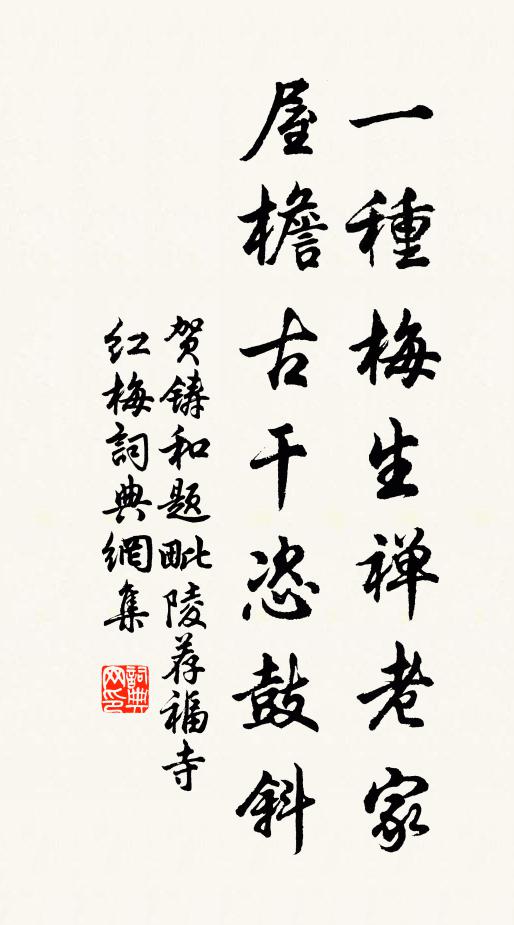 一種梅生禅老家
屋檐古干恣鼓斜
贺鑄和题毗陵荐福寺
红梅詞典網集
詞典
网印